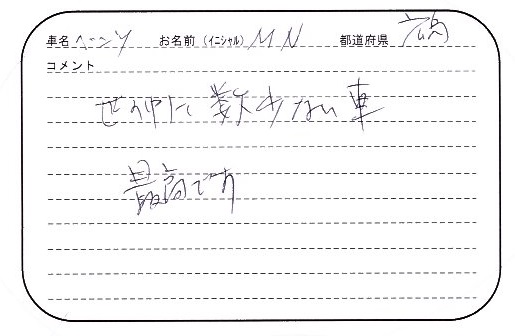 車名 ベンツ お名前(イニシャル) M N 都道府県 広島
コメント
世の中に数少ない車
最高です